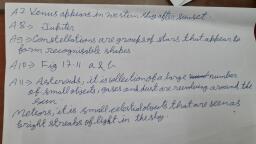 A7 Venus appears in western sky after sunset
A8 → Jupiter
A9 → Constellations are groups of stars that appear to
form recognisable shapes
A10 → Fig 17.11 a & b
A11 → Asteroids, it is collection of a large number
of small objects, gases and dust are revolving around the
sun
Meteors, it is small celestial objects that are seen as
bright streaks of light in the sky.